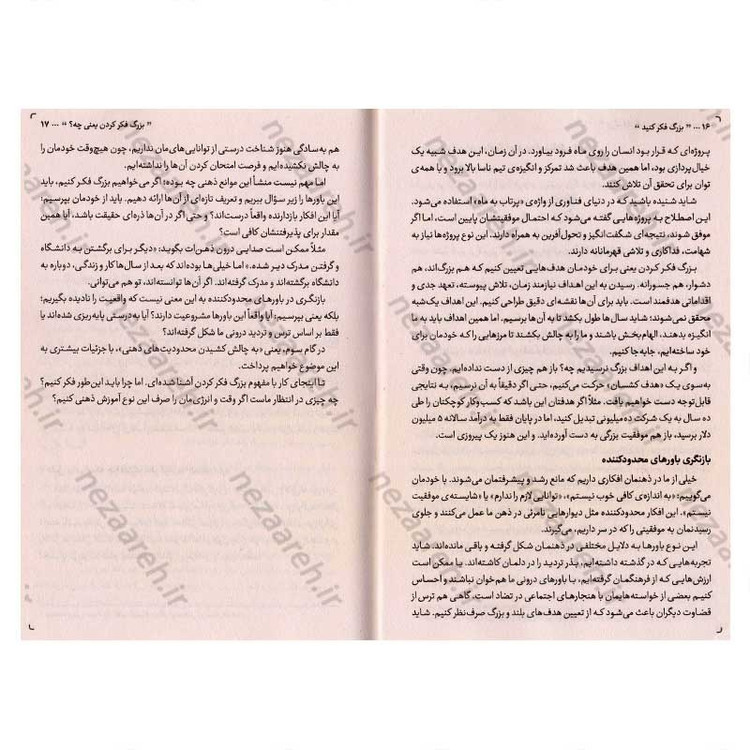 ۱۶ ... " بزرگ فکر کنید "
پروژه‌ای که قرار بود انسان را روی ماه فرود بیاورد. در آن زمان، این هدف شبیه یک
خیال‌پردازی بود، اما همین هدف باعث شد تمرکز و انگیزه‌ی تیم ناسا بالا برود و با همه‌ی
توان برای تحقق آن تلاش کنند.
شاید شنیده باشید که در دنیای فناوری از واژه‌ی «پرتاب به ماه» استفاده می‌شود.
این اصطلاح به پروژه‌هایی گفته می‌شود که احتمال موفقیتشان پایین است، اما اگر
موفق شوند، نتیجه‌ای شگفت‌انگیز و تحول‌آفرین به همراه دارند. این نوع پروژه‌ها نیاز به
شهامت، فداکاری و تلاشی قهرمانانه دارند.
بزرگ فکر کردن یعنی برای خودمان هدف‌هایی تعیین کنیم که هم بزرگ‌اند، هم
دشوار، هم جسورانه. رسیدن به این اهداف نیازمند زمان، تلاش پیوسته، تعهد جدی و
اقداماتی هدفمند است. باید برای آن‌ها نقشه‌ای دقیق طراحی کنیم. این اهداف یک‌شبه
محقق نمی‌شوند؛ شاید سال‌ها طول بکشد تا به آن‌ها برسیم. اما همین اهداف باید به ما
انگیزه بدهند، الهام‌بخش باشند و ما را به چالش بکشند تا مرزهایی را که خودمان برای
خود ساخته‌ایم، جابه‌جا کنیم.
و اگر به این اهداف بزرگ نرسیدیم چه؟ باز هم چیزی از دست نداده‌ایم. چون وقتی
به‌سوی یک «هدف کشسان» حرکت می‌کنیم، حتی اگر دقیقاً به آن نرسیم، به نتایجی
قابل‌توجه دست خواهیم یافت. مثلاً اگر هدفتان این باشد که کسب‌وکار کوچکتان را طی
ده سال به یک شرکت ده‌میلیونی تبدیل کنید، اما در پایان فقط به درآمد سالانه ۵ میلیون
دلار برسید، باز هم موفقیت بزرگی به دست آورده‌اید. و این هنوز یک پیروزی است.
بازنگری باورهای محدودکننده
خیلی از ما در ذهنمان افکاری داریم که مانع رشد و پیشرفتمان می‌شوند. با خودمان
می‌گوییم: «به اندازه‌ی کافی خوب نیستم»، «توانایی لازم را ندارم» یا «شایسته‌ی موفقیت
نیستم». این افکار محدودکننده مثل دیوارهایی نامرئی در ذهن ما عمل می‌کنند و جلوی
رسیدنمان به موفقیتی را که در سر داریم، می‌گیرند.
این نوع باورها به دلایل مختلفی در ذهنمان شکل گرفته و باقی مانده‌اند. شاید
تجربه‌هایی که در گذشته داشته‌ایم، بذر تردید را در دلمان کاشته‌اند. یا ممکن است
ارزش‌هایی که از فرهنگمان گرفته‌ایم، با باورهای درونی ما هم‌خوان نباشند و احساس
کنیم بعضی از خواسته‌هایمان با هنجارهای اجتماعی در تضاد است، گاهی هم ترس از
قضاوت دیگران باعث می‌شود که از تعیین هدف‌های بلند و بزرگ صرف‌نظر کنیم. شاید
" بزرگ فکر کردن یعنی چه؟ " ... ۱۷
هم به‌سادگی هنوز شناخت درستی از توانایی‌های‌مان نداریم، چون هیچ‌وقت خودمان را
به چالش نکشیده‌ایم و فرصت امتحان کردن آن‌ها را نداشته‌ایم.
اما مهم نیست منشأ این موانع ذهنی چه بوده؛ اگر می‌خواهیم بزرگ فکر کنیم، باید
این باورها را زیر سؤال ببریم و تعریف تازه‌ای از آن‌ها ارائه دهیم. باید از خودمان بپرسیم:
آیا این افکار بازدارنده واقعاً درست‌اند؟ و حتی اگر در آن‌ها ذره‌ای حقیقت باشد، آیا همین
مقدار برای پذیرفتنشان کافی است؟
مثلاً ممکن است صدایی درون ذهن‌ات بگوید: «دیگر برای برگشتن به دانشگاه
و گرفتن مدرک دیر شده.» اما خیلی‌ها بوده‌اند که بعد از سال‌ها کار و زندگی، دوباره به
دانشگاه برگشته‌اند و مدرک گرفته‌اند. اگر آن‌ها توانسته‌اند، تو هم می‌توانی.
بازنگری در باورهای محدودکننده به این معنی نیست که واقعیت را نادیده بگیریم؛
بلکه یعنی بپرسیم: آیا واقعاً این باورها مشروعیت دارند؟ آیا به‌درستی پایه‌ریزی شده‌اند یا
فقط بر اساس ترس و تردید درونی ما شکل گرفته‌اند؟
در گام سوم، یعنی «به چالش کشیدن محدودیت‌های ذهنی»، با جزئیات بیشتری به
این موضوع خواهیم پرداخت.
تا اینجای کار با مفهوم بزرگ فکر کردن آشنا شده‌ای. اما چرا باید این‌طور فکر کنیم؟
چه چیزی در انتظار ماست اگر وقت و انرژی‌مان را صرف این نوع آموزش ذهنی کنیم؟
nezaareh.ir